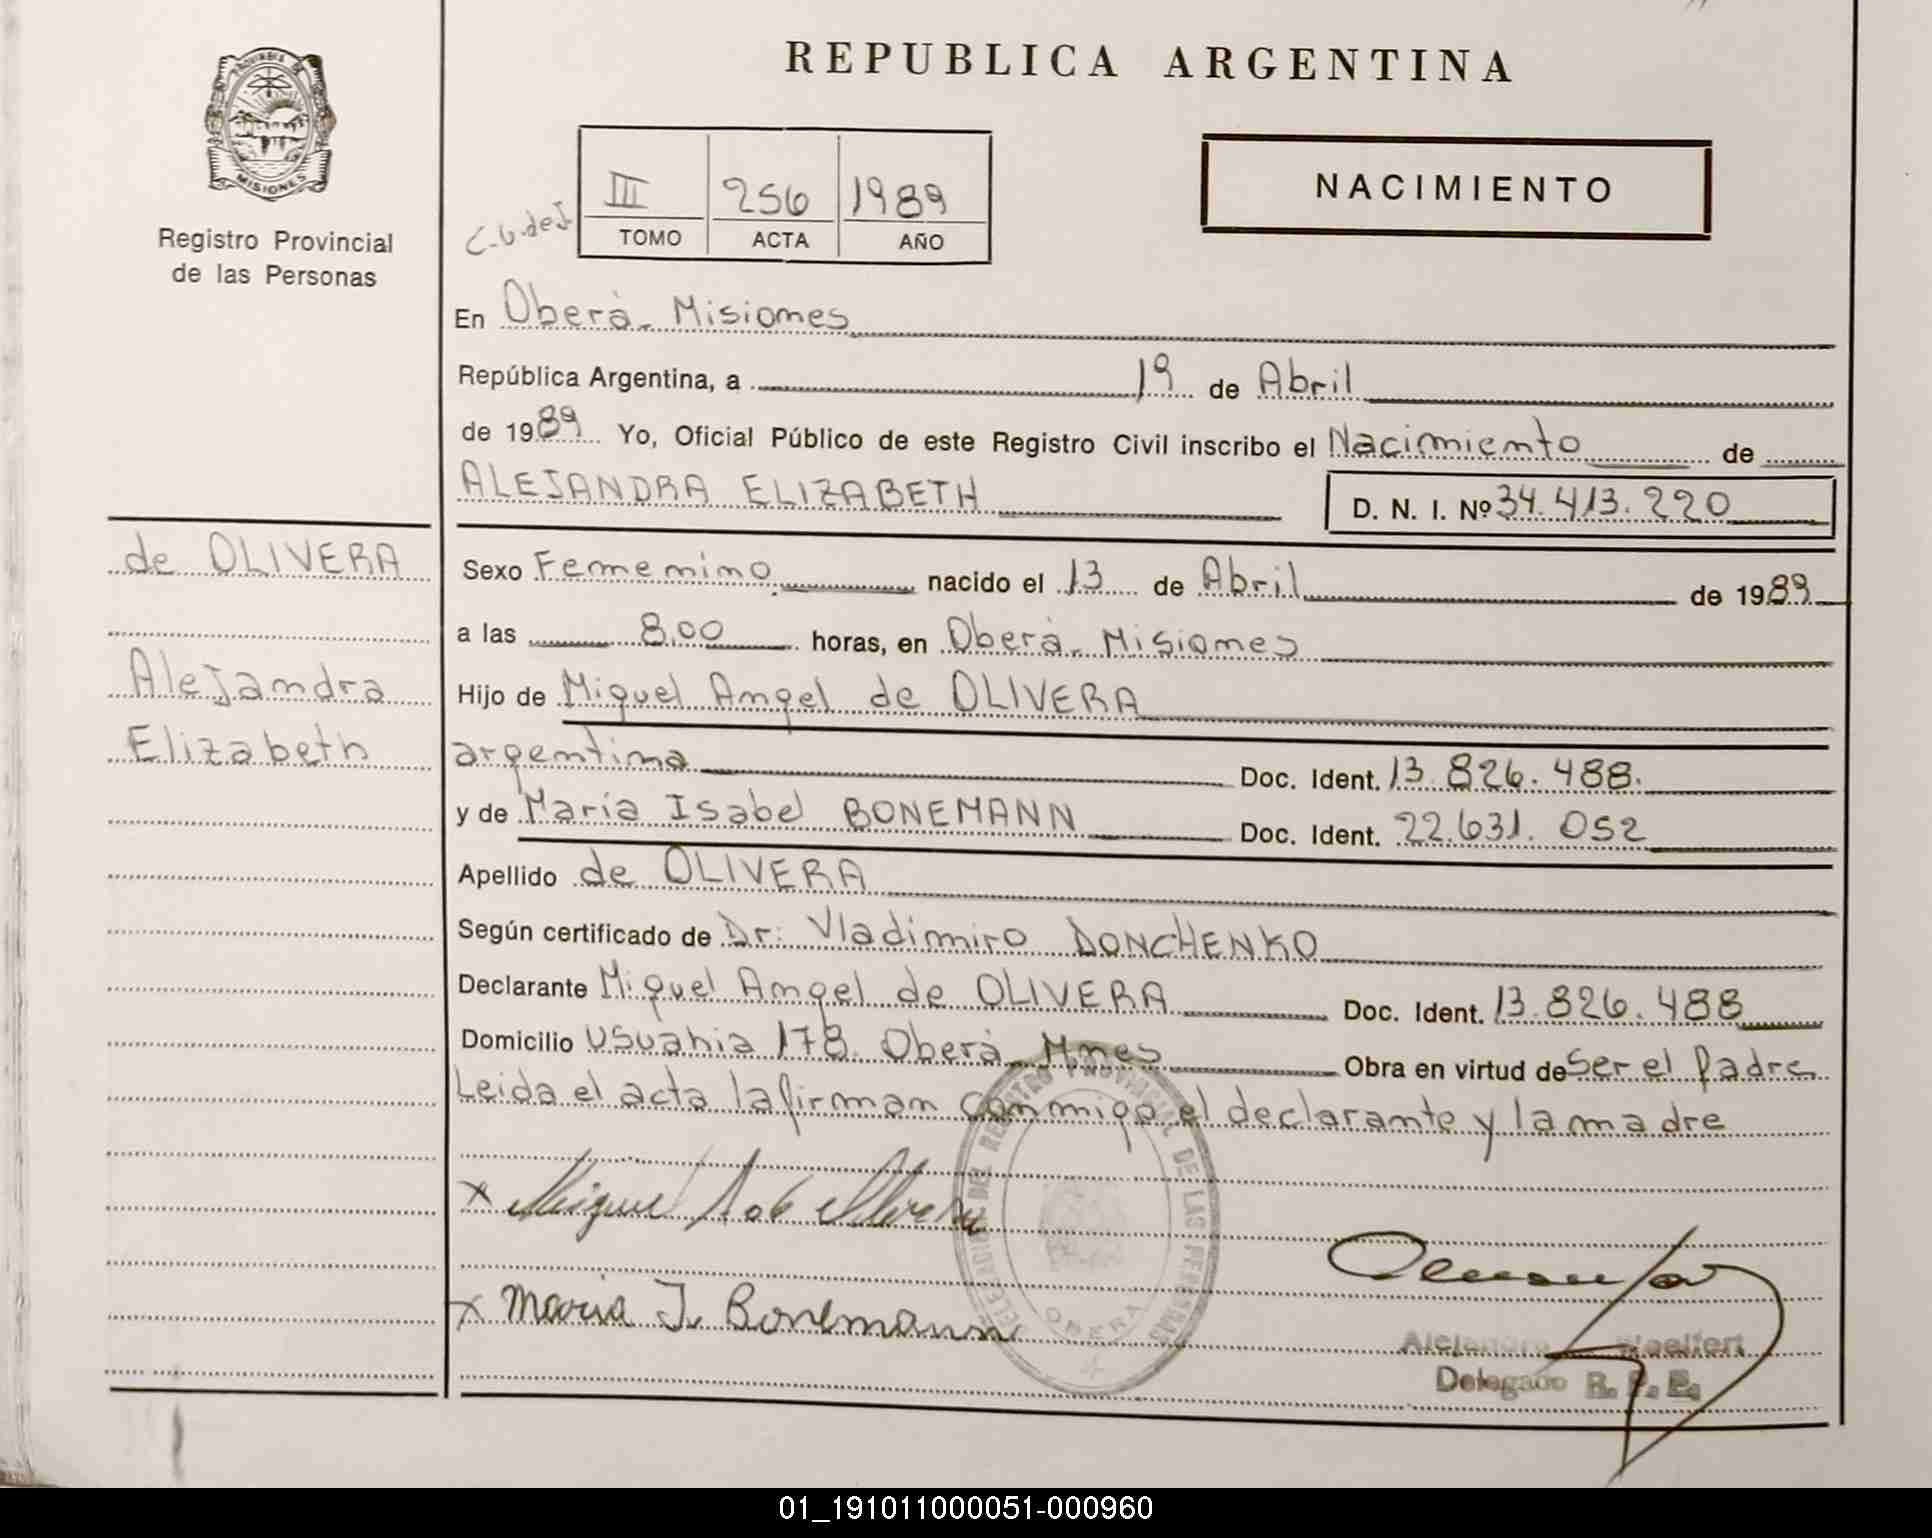 REPUBLICA ARGENTINA
PROVINCIA DE
MISIONES
Registro Provincial
de las Personas
III 256 1989
TOMO ACTA AÑO
NACIMIENTO
En Oberá - Misiones
República Argentina, a 19 de Abril
de 1989 Yo, Oficial Público de este Registro Civil inscribo el Nacimiento de
ALEJANDRA ELIZABETH D. N. I. Nº 34.413.220
de OLIVERA
Alejandra
Elizabeth
Sexo Femenino nacido el 13 de Abril de 1989
a las 8,00 horas, en Oberá - Misiones
Hijo de Miguel Angel de OLIVERA
argentina Doc. Ident. 13.826.488.
y de María Isabel BONEMANN Doc. Ident. 22.631.052
Apellido de OLIVERA
Según certificado de Dr: Vladimiro DONCHENKO
Declarante Miguel Angel de OLIVERA Doc. Ident. 13.826.488
Domicilio Usuahia 178. Oberá - Mnes Obra en virtud de Ser el Padre
Leida el acta la firman conmigo el declarante y la madre
DELEGACION DEL REGISTRO PROVINCIAL DE LAS PERSONAS
OBERA
x Miguel
x Maria I. Bonemann
Alejandro Woelfert
Delegado R. P. P.
01_191011000051-000960